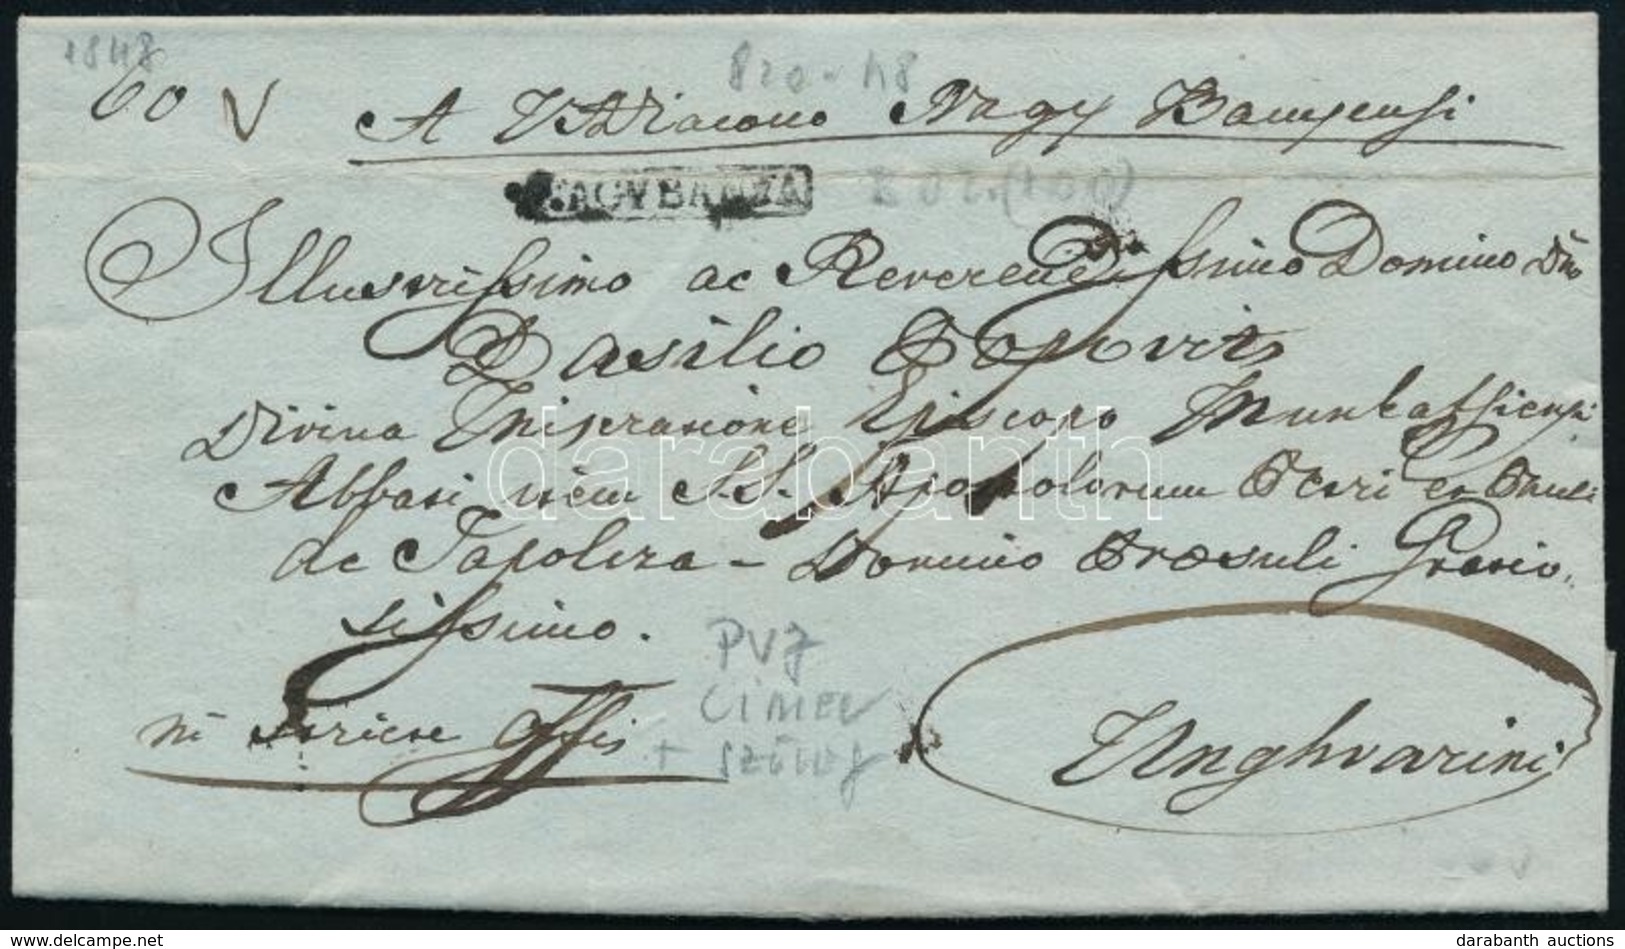 1848
60
A VADiacono Nagy Banyensi
NAGYBANYA
Illustrissimo ac Reverendissimo Domino Dno
Basilio Popovits
Divina Miseratione Episcopo Munkatsiensi
Abbati item S.S. Apostolorum Petri et Pauli
de Tapolcza - Domino Præsuli Gratio-
sissimo.
in serie Offis
Unghvarini
darabanth
delcampe.net
darabanth auctions